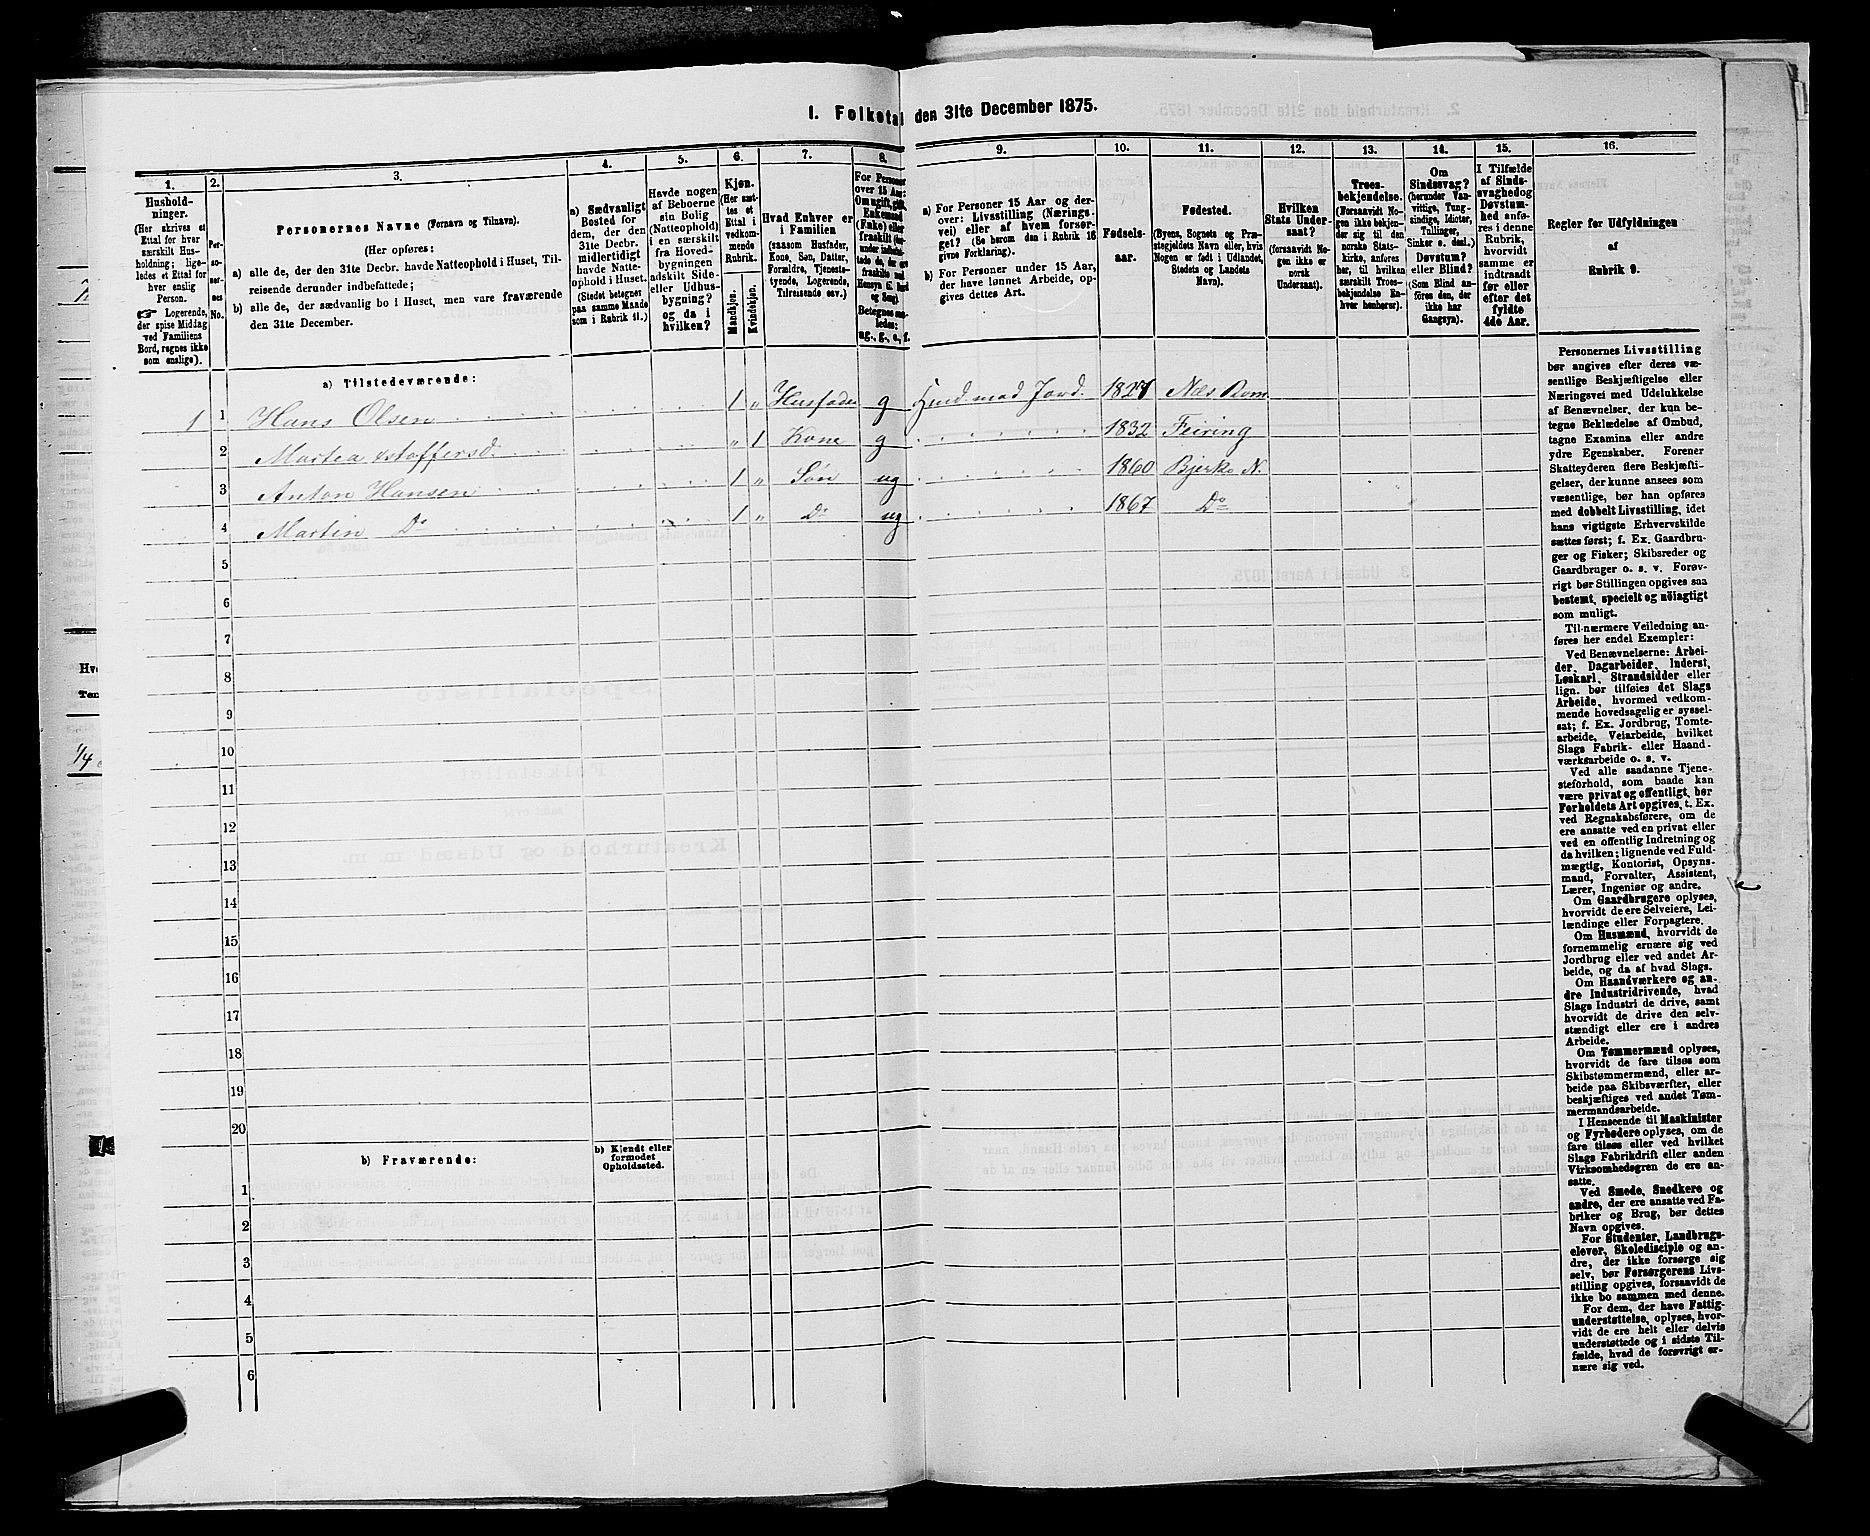 I. Folketal den 31te December 1875.
1.
2.
3.
4.
5.
6.
7.
8.
9.
10.
11.
12.
13.
14.
15.
16.
Hushold-
ninger.
(Her skrives et
Ettal for hver
særskilt Hus-
holdning; lige-
ledes et Ettal for
hver enslig
Person.
☞ Logerende,
der spise Middag
ved Familiens
Bord, regnes ikke
som enslige).
Per-
so-
ner-
nes
No.
Personernes Navne (Fornavn og Tilnavn).
(Her opføres:
a) alle de, der den 31te Decbr. havde Natteophold i Huset, Til-
reisende derunder indbefattede;
b) alle de, der sædvanlig bo i Huset, men vare fraværende
den 31te December.
a) Sædvanligt
Bosted for
dem, der den
31te Decbr.
midlertidigt
havde Natte-
ophold i Huset.
(Stedet betegnet
paa samme Maade
som i Rubrik 11.)
Havde nogen
af Beboerne
sin Bolig
(Natteophold)
i en særskilt
fra Hoved-
bygningen
adskilt Side-
eller Udhus-
bygning?
og da i
hvilken?
Kjøn.
(Her sæt-
tes et
Ettal i
vedkom-
mende
Rubrik.
Mandkjøn.
Kvindekjøn.
Hvad Enhver er
i Familien
(saasom Husfader,
Kone, Søn, Datter,
Forældre, Tjeneste-
tyende, Logerende,
Tilreisende osv.)
For Personer
over 15 Aar:
Om ugift, gift,
Enkemand
(Enke) eller
fraskilt
Betegnes saa-
ledes:
ug., g., e., f.
a) For Personer 15 Aar og der-
over: Livsstilling (Nærings-
vei) eller af hvem forsør-
get? (Se herom den i Rubrik 16
givne Forklaring).
b) For Personer under 15 Aar,
der have lønnet Arbeide, op-
gives dettes Art.
Fødsels-
aar.
Fødested.
(Byens, Sognets og Præ-
stegjeldets Navn eller, hvis
Nogen er født i Udlandet,
Stedets og Landets
Navn).
Hvilken
Stats Under-
saat?
(forsaavidt No-
gen ikke er
norsk
Undersaat).
Troes-
bekjendelse.
(Forsaavidt No-
gen ikke bekjen-
der sig til den
norske Stats-
kirke, anføres
her, til hvilken
særskilt Troes-
bekjendelse En-
hver henhører).
Om
Sindssvag?
(herunder Van-
vittige, Tung-
sindige, Idioter,
Tullinger,
Sinker o. desl.)
Døvstum?
eller Blind?
(Som Blind an-
føres den, der
ikke har
Gangsyn).
I Tilfælde
af Sinds-
svaghed og
Døvstum-
hed anfø-
res i denne
Rubrik,
hvorvidt
samme er
indtraadt
før eller
efter det
fyldte
4de Aar.
Regler for Udfyldningen
af
Rubrik 9.
a) Tilstedeværende:
1 1 Hans Olsen 1 „ Husfader g Husd. med Jord. 1827 Næs Rom
2 Martea „ 1 Kone g 1832 Feiring
3 Anton Hansen 1 „ Søn ug 1860 Bjerke N.
4 Martin Do 1 „ Do ug 1867 Do
5
6
7
8
9
10
11
12
13
14
15
16
17
18
19
20
b) Fraværende:
b) Kjendt eller
formodet
Opholdssted.
1
2
3
4
5
6
Personernes Livsstilling
bør angives efter deres væ-
sentlige Beskjæftigelse eller
Næringsvei med Udelukkelse
af Benævnelser, der kun be-
tegne Beklædelse af Ombud,
tagne Examina eller andre
ydre Egenskaber. Forener
Skatteyderen flere Beskjæfti-
gelser, der kunne ansees som
væsentlige, bør han opføres
med dobbelt Livsstilling, idet
hans vigtigste Erhvervskilde
sættes først; f. Ex. Gaardbru-
ger og Fisker; Skibsreder og
Gaardbruger o. s. v. Forøv-
rigt bør Stillingen opgives saa
bestemt, specielt og nöiagtigt
som muligt.
Til nærmere Veiledning an-
føres her endel Exempler:
Ved Benævnelserne: Arbei-
der, Dagarbeider, Inderst,
Løskarl, Strandsidder eller
lign. bør tilføies det Slags
Arbeide, hvormed vedkom-
mende hovedsagelig er syssel-
sat; f. Ex. Jordbrug, Tomte-
arbeide, Veiarbeide, hvilket
Slags Fabrik- eller Haand-
værksarbeide o. s. v.
Ved alle saadanne Tjene-
steforhold, som baade kan
være privat og offentligt, bør
Forholdets Art opgives, t. Ex.
ved Regnskabsførere, om de
ere ansatte ved en privat eller
ved en offentlig Indretning og
da hvilken; lignende ved Fuld-
mægtig, Kontorist, Opsyns-
mand, Forvalter, Assistent,
Lærer, Ingeniør og andre.
Om Gaardbrugere oplyses,
hvorvidt de ere Selveiere, Lei-
lændinge eller Forpagtere.
Om Husmænd, hvorvidt de
fornemmelig ernære sig ved
Jordbrug eller ved andet Ar-
beide, og da af hvad Slags.
Om Haandværkere og an-
dre Industridrivende, hvad
Slags Industri de drive, samt
hvorvidt de drive den selv-
stændigt eller ere i andres
Arbeide.
Om Tømmermænd oplyses,
hvorvidt de fare tilsøs som
Skibstømmermænd, eller ar-
beide paa Skibsværfter, eller
beskjæftiges ved andet Tøm-
mermandsarbeide.
I Henseende til Maskinister
og Fyrbødere oplyses, om de
fare tilsøs eller ved hvilket
Slags Fabrikdrift eller anden
Virksomhedsgren de ere an-
satte.
Ved Smede, Snedkere og
andre, der ere ansatte ved Fa-
briker og Brug, bør dettes
Navn opgives.
For Studenter, Landbrugs-
elever, Skoledisciple og an-
dre, der ikke forsørge sig
selv, bør Forsørgerens Livs-
stilling opgives, forsaavidt de
ikke bo sammen med denne.
For dem, der have Fattig-
understøttelse, oplyses, hvor-
vidt de ere helt eller delvis
understøttede og i sidste Til-
fælde, hvad de forøvrigt er-
nære sig ved.